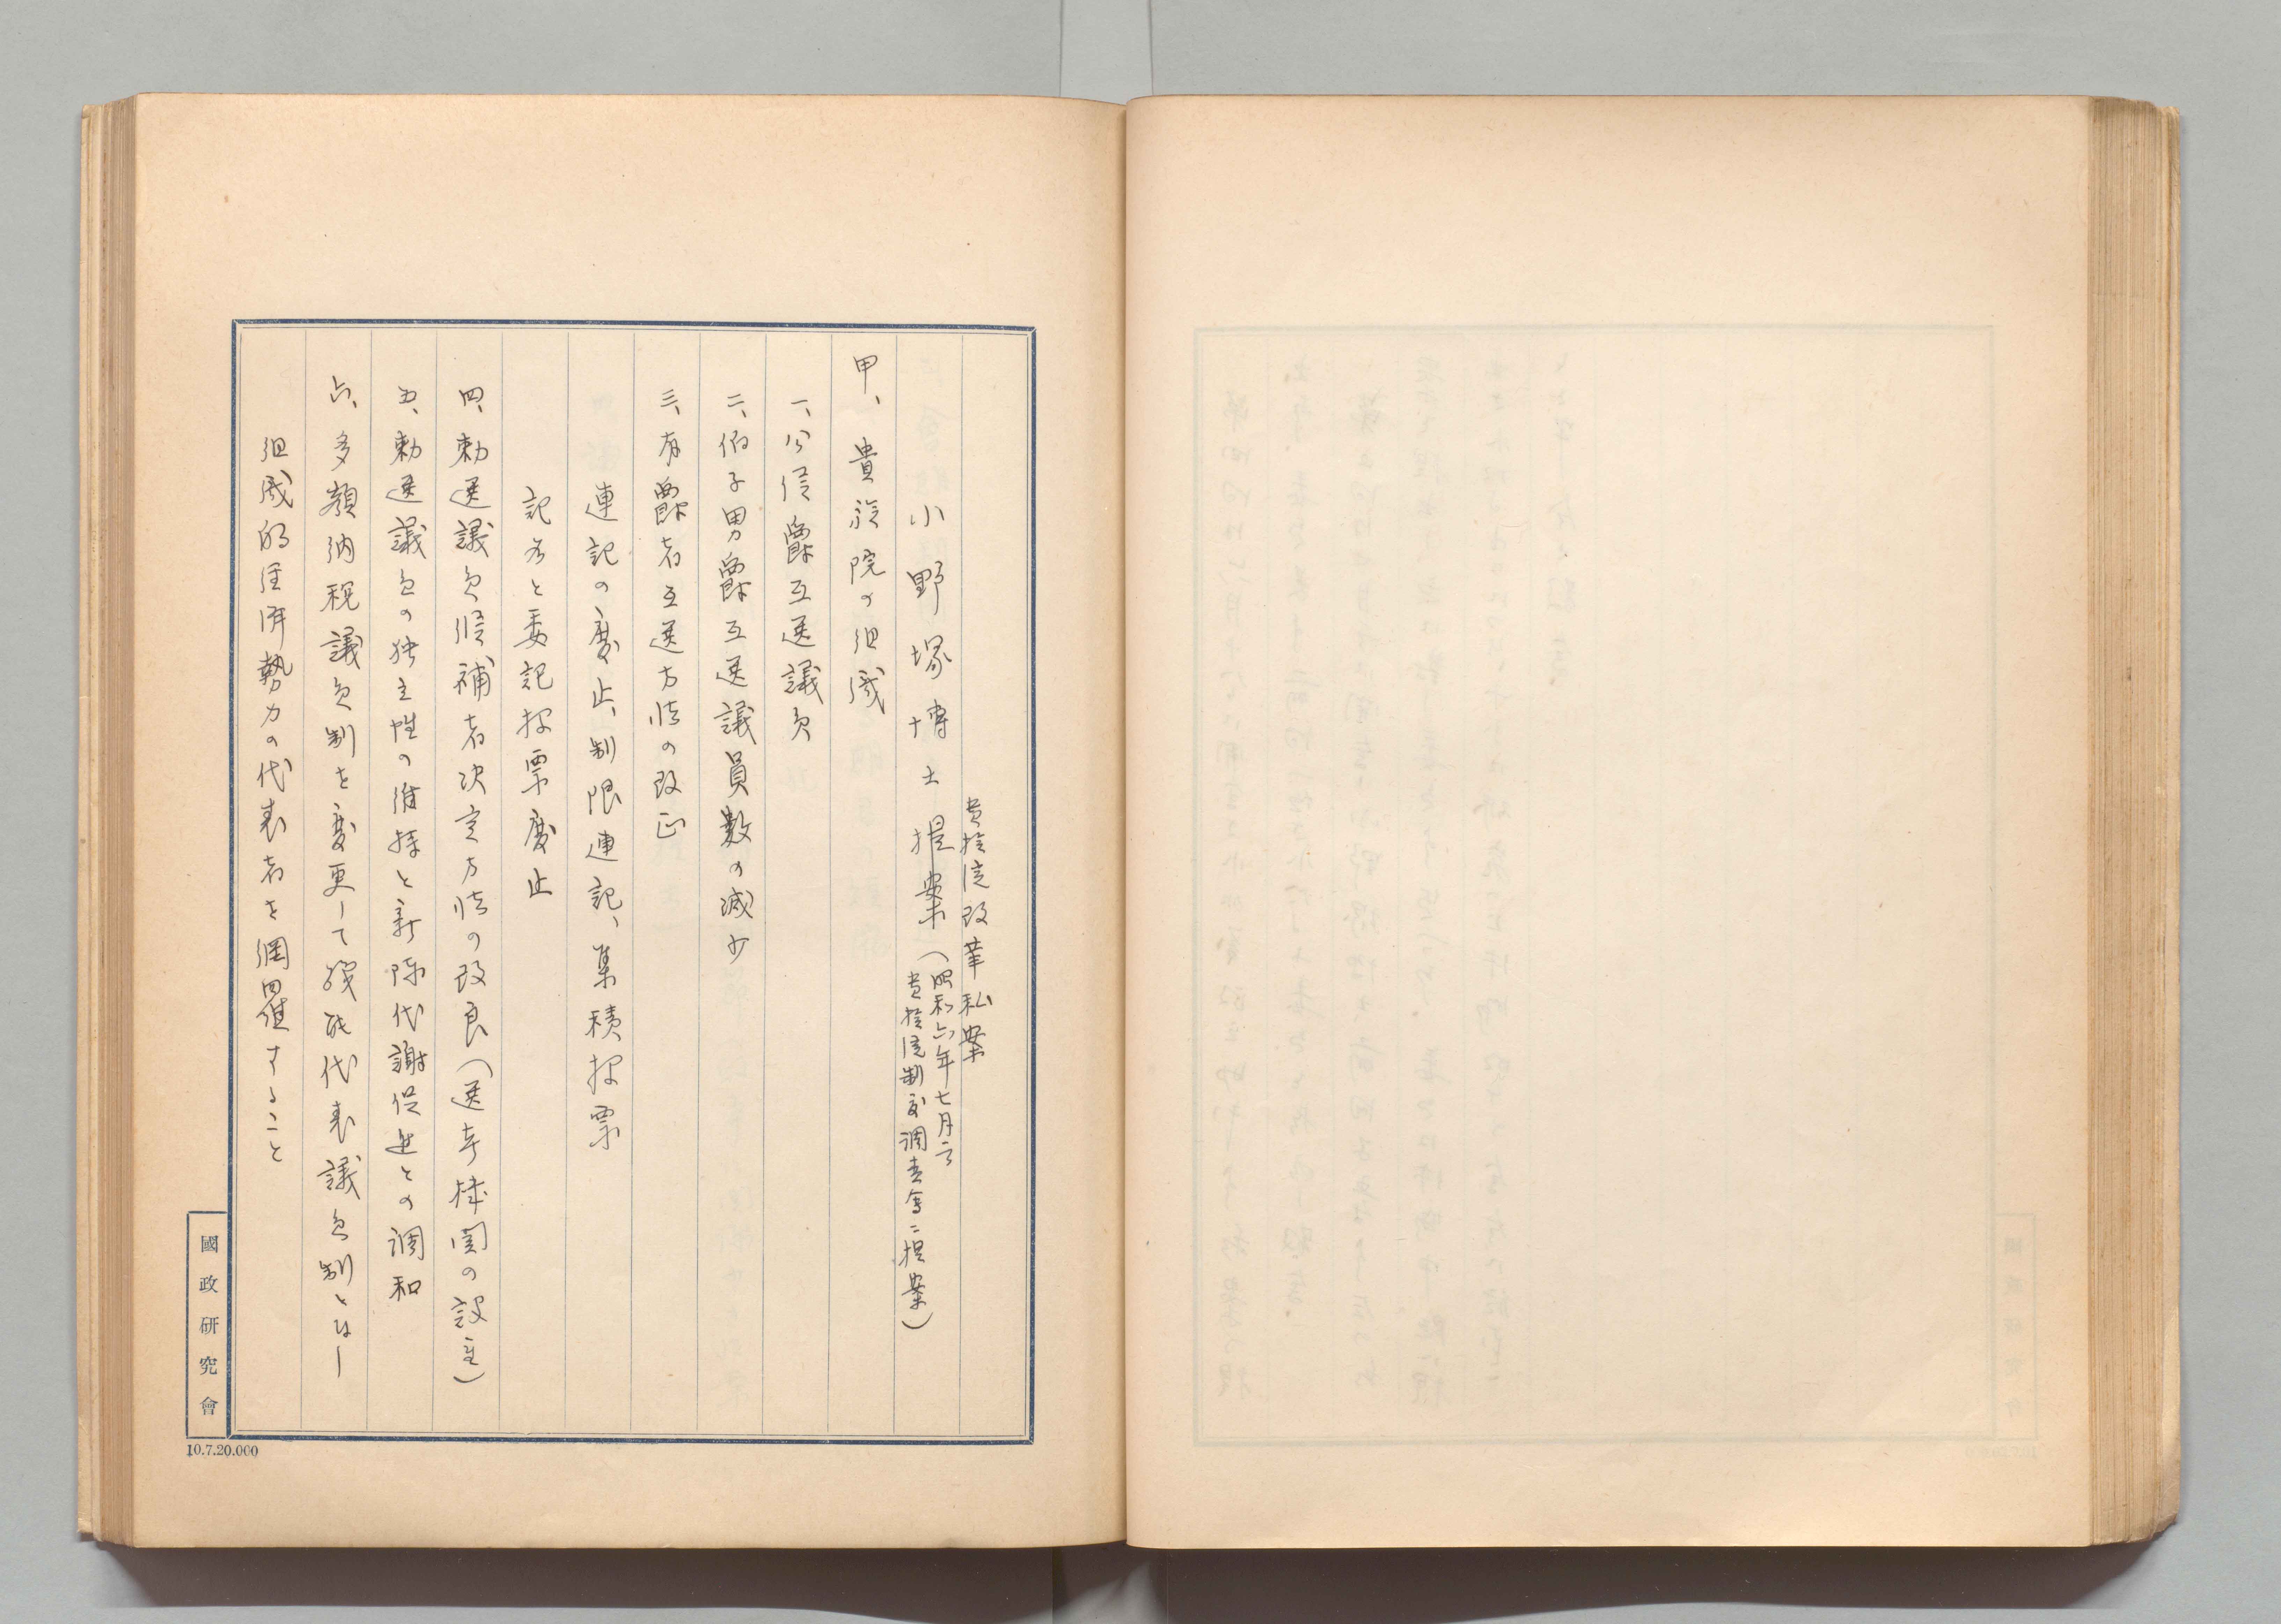 貴族院改革私案
小野塚博士提案（昭和六年七月二日
貴族院制度調査會ニ提案）
甲、貴族院の組織
一、公侯爵互選議員
二、伯子男爵互選議員数の減少
三、有爵者互選方法の改正
連記の廃止、制限連記、集積投票
記名と委記投票廃止
四、勅選議員候補者決定方法の改良（選考機関の設定）
五、勅選議員の独立性の維持と新陳代謝促進との調和
六、多額納税議員制を変更して職能代表議員制となし
組織的経済勢力の代表者を網羅すること
國政研究會
10.7.20.000